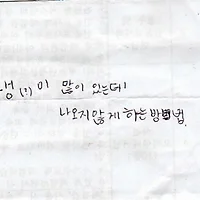 생(?)이 많이 있는데!
나오지않게 하는방법.